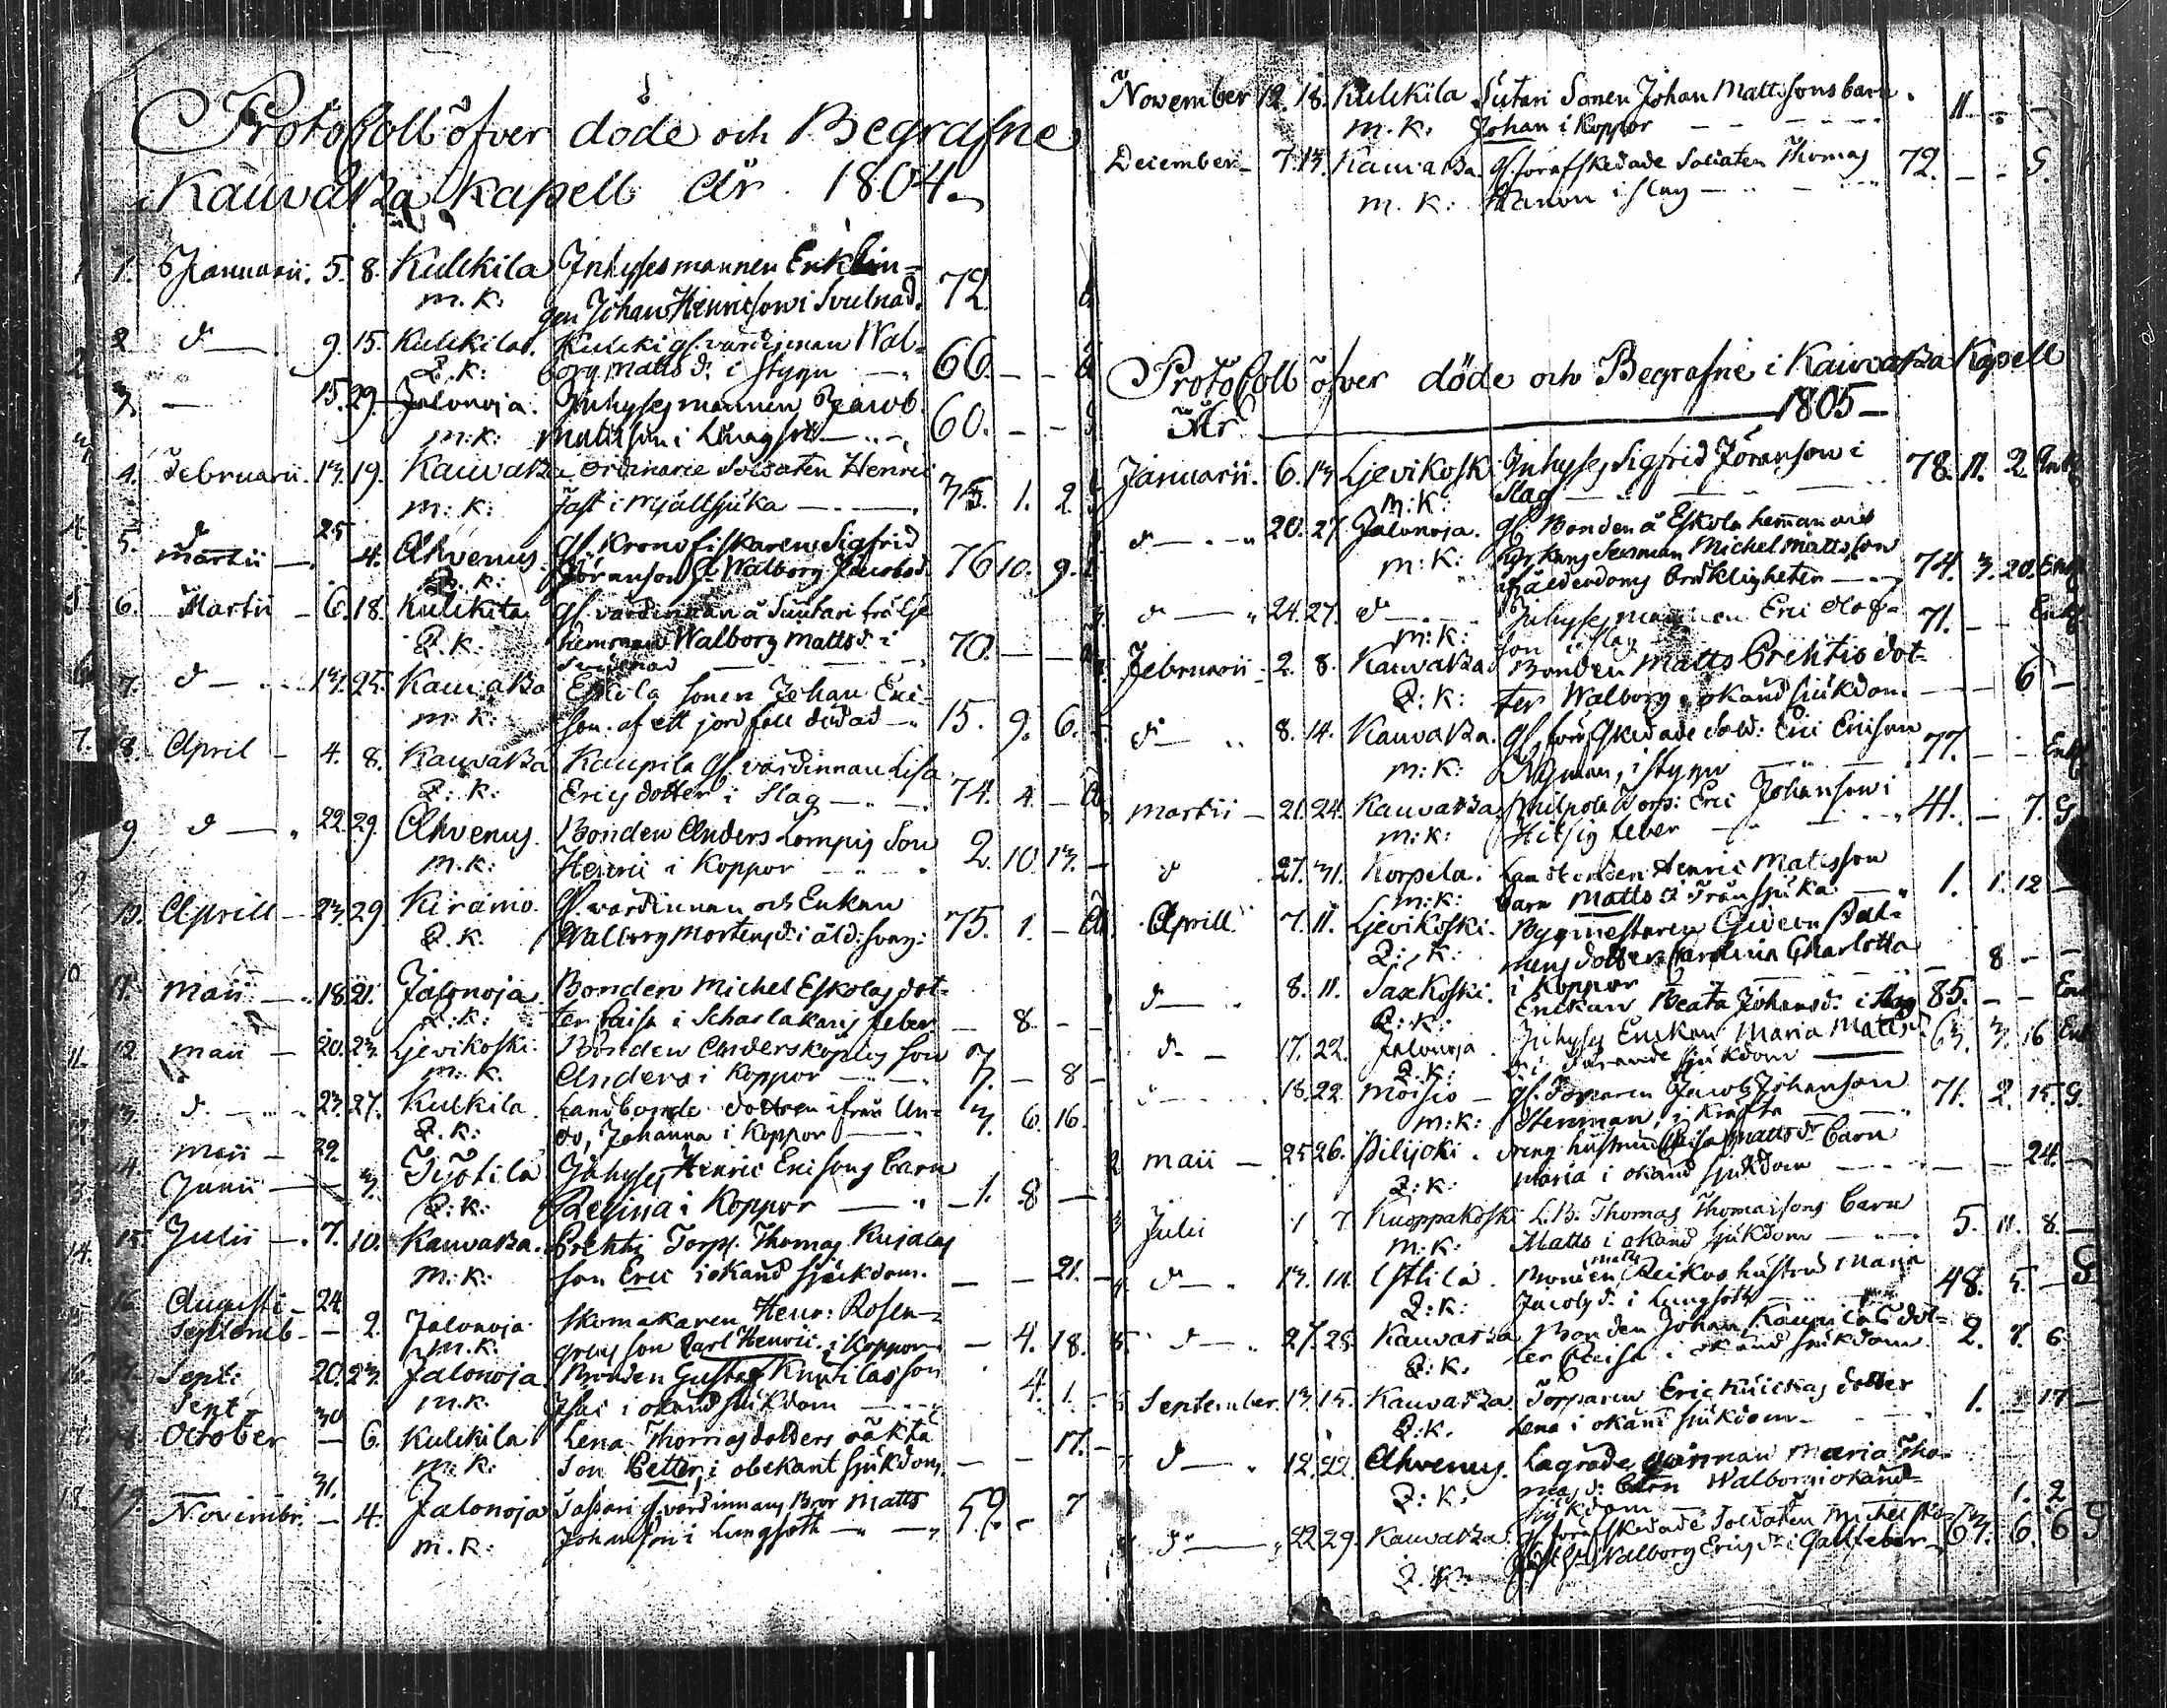 Protokoll öfver döde och Begrafne
i Kauvatsa Kapell År 1804.
1. Januarii. 5. 8. Kulckila Inhysesmannen Enklin-
m. K: gen Johan Henricson i Svulnad. 72.
2 d 9. 15. Kulckila. Kulcki gl. värdinnan Wal-
Q. K: borg Matts d: i stygn 66. - -
3 15. 29. Jalonoja. Inhysesmannen Jacob
m: K: Mattsson i Lungsot 60. - -
4. Februarii. 13. 19. Kauvatsa ordinarie Soldaten Henric
m: K: Fast i Mjältsjuka 1. 2.
5. d 25
Martii 4. Ahvenus. gl. Kronofiskaren Sigfrid
Q. K: Jöranson h. Walborg Jacobsd. 76 10. 9.
6. Martii - 6. 18. Kulckila gl. värdinnan å Suutari
Q. K: hemman Walborg Matts d: i
Svulnad 70. - -
7. d 13. 25. Kauvatsa Eskola sonen Johan Eric-
m. K: son. af ett jordfall dödad 15. 9. 6.
8. April - 4. 8. Kauvatsa Kaupila gl. värdinnan Lisa
Q: K: Erics dotter i Slag 74. 4. -
9 d 22. 29. Ahvenus. Bonden Anders Lompis Son
m. K: Henric i Koppor 2. 10 13. -
10. Aprill - 23. 29. Kiramo. gl. värdinnan och Enkan
Q. K. Walborg Mortens d: i åld: svag: 75. 1. -
11. Maii 18. 21. Jalonoja. Bonden Michel Eskolas dot-
Q: K: ter Caisa i Scharlakans feber - 8. - -
12. Maii - 20. 23. Ljevikoski. Bonden Anders Köpilis son
m. K. Anders i Koppor 3. - 8 -
13. d. 23. 27. Kulckila. Landbonde dottren ifrån Un-
Q. K: do, Johanna i Koppor 3. 6. 16.
14. Maii - 29.
Junii 3. Työtilä Inhyses Henric Ericsons barn
Q: K: Regina i Koppor 1. 8 -
15. Julii - 7. 10. Kauvatsa. Prehti Torp. Thomas Kujalas
m: K: son Eric i okänd sjukdom. - - 21. -
16. Augusti - 24.
Septemb. - 2. Jalonoja. Skomakaren Henr: Rosen-
m. K. grens son Carl Henric. i Koppor - 4. 18.
17. Sept: 20. 23. Jalonoja. Bonden Gustaf Knuutilas son
m. K. Isac i okänd sjukdom 4. 1. -
Sept. 30
18. October - 6. Kulckila Lena Thomasdotters oäkta
m. K: Son Petter, i obekant sjukdom. - - 17. -
31.
19. Novembr. - 4. Jalonoja Sassari gl. värdinnans Bror Matts
m. K: Johanson i Lungsoth 59. - 7
November 12. 18. Kulckila Sutari Sonen Johan Mattssons barn.
m. K. Johan i Koppor 11. - -
December - 7. 13. Kauvatsa. gl. förafskedade Soldaten Thomas 72. - - G.
m. K: i slag
Protokoll öfver döde och Begrafne i Kauvatsa Kapell
År 1805
Januarii. 6. 13 Ljevikosk. Inhyses Sigfrid Jöranson i
m: K: Slag 78. 11. 2 Enk
d 20. 27. Jalonoja. gl. Bonden å Eskola hemman och
m: K: Michel Mattsson
i ålderdoms bräckligheter 74. 3. 20. Enk
3. d 24. 27. d Inhysesmannen Eric Olof-
m: K: son i slag 71. - - Enk
Februarii - 2. 8. Kauvatsa Bonden Matts Prehtis dot-
Q: K: ter Walborg, okänd sjukdom. - - 6 -
d 8. 14. Kauvatsa. gl. förafskedade Sold: Eric Ericson
m: K: i styng 77. - - Enk
Martii - 21. 24. Kauvatsa Torp: Eric Johanson i
m: K: Hitsig feber 41. - 7. G
d 27. 31. Korpela. Landbonden Henric Mattsson
m: K: barn Matts i Tränsjuka 1. 1. 12 -
Aprill 7. 11. Ljevikoski. Bygmestaren Gideon
Q: K: dotter Carolina Charlotta
i Koppor - 8 - -
d 8. 11. Saxkoski. Enckan Beata Johansd: i slag 85. - - Enk
Q: K:
d. - 17. 22. Jalonoja. Inhyses Enckan Maria Matts
Q. K: d: i sjukdom 63. 3. 16 Enk
18. 22. Moisio - gl. Torparen Jacob Johanson
m: K: Stenman, i Kräfta 71. 2. 15. G.
Maii - 25 26. Pilijoki. dreng hustrun Caisa Matts d: barn
Q: K: Maria i okänd sjukdom - 24. -
Julii 1 7 Kuoppakoski L. B. Thomas Thomassons barn
m: K: Matts i okänd sjukdom 5. 11. 8. -
d 13. 14. Yttilä. Bonden Matts Reikos hustru Maria
Q: K: Jacobs d: i Lungsoth 48. 5. - G
d 27. 28. Kauvatsa Bonden Johan Kaupilas dot-
Q: K. ter Caisa i okänd sjukdom 2. 7. 6.
September. 13. 15. Kauvatsa Torparen Eric Kuickas dotter
Q: K. Lena i okänd sjukdom 1. - 17 -
d 12. 22. Ahvenus. Lägrade qvinnan Maria Tho-
Q: K: mas d: barn Walborg i okänd
sjukdom 1. 2
d 22 29. Kauvatsa. gl. förafskedade Soldaten Michel
Q. K: Walborg Erics d: i Gallfeber 63. 6. 6 G